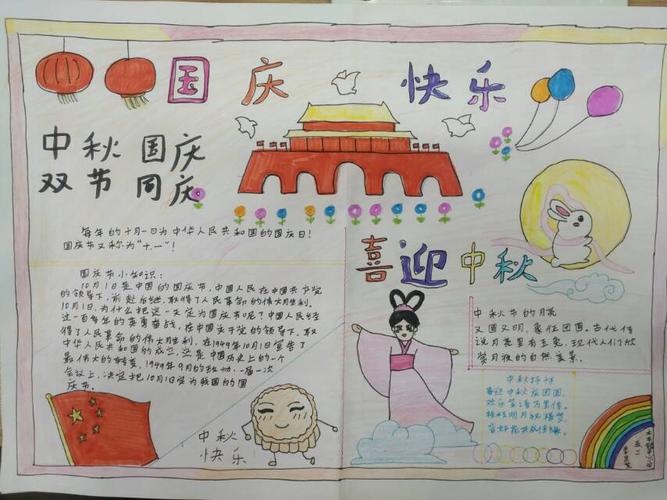 国庆 快乐
中秋 国庆
双节 同庆
每年的十月一日为中华人民共和国的国庆日!
国庆节又称为"十一"!
喜迎中秋
国庆节小知识:
10月1日是中国的国庆节,中国人民在中国共产党
的领导下,前赴后继,取得了人民革命的伟大胜利。
10月1日,为什么把这一天定为国庆节呢?中国人民经
过一百多年的英勇奋战,在中国共产党的领导下,取
得了人民革命的伟大胜利,在1949年10月1日宣告了
中华人民共和国的成立,这是中国历史上的一个
最伟大的转变,1949年9月的政协 第一次
会议上,决定把10月1日定为我国的国
庆节。
中秋节的月亮
又圆又明,象征团圆。古代传
说月亮里有玉兔,现代人们欣
赏月夜的自然
中秋
喜迎中秋庆团圆
欢乐
中秋
快乐
五二